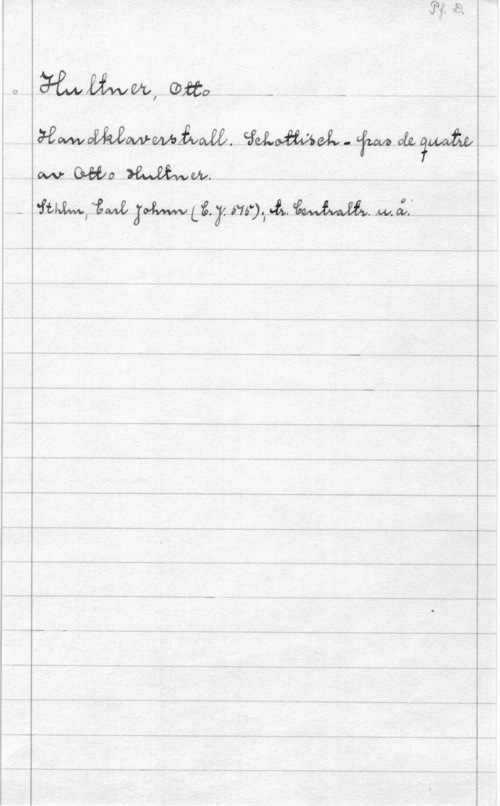 Pf. D.
Hultner, Otto
Handklaverstrall. Schottisch - pas de quatre
av Otto Hultner.
Sthlm, Carl Johnn (C. J. 575); tr. Centraltr. u. å.